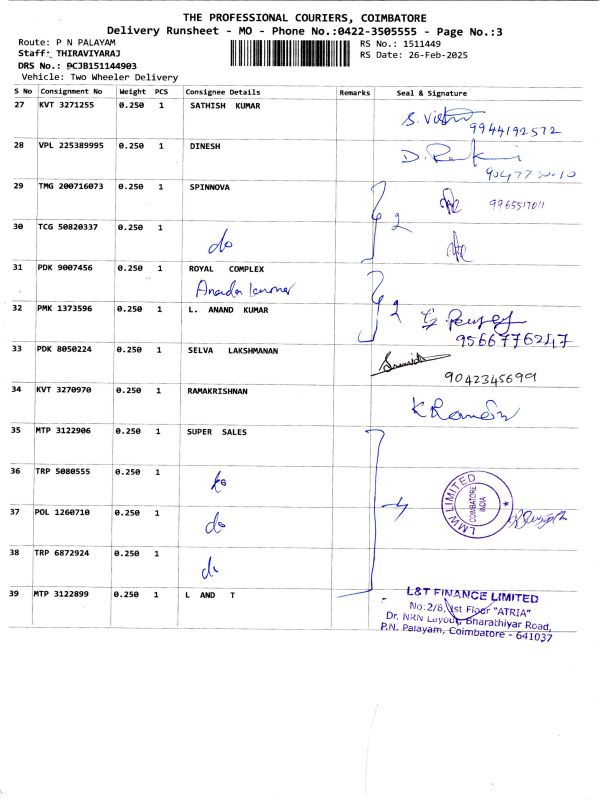 THE PROFESSIONAL COURIERS, COIMBATORE
Delivery Runsheet - MO - Phone No.:0422-3505555 - Page No.:3
Route: P N PALAYAM RS No.: 1511449
Staff: THIRAVIYARAJ RS Date: 26-Feb-2025
DRS No.: PCJB151144903
Vehicle: Two Wheeler Delivery
S No Consignment No Weight PCS Consignee Details Remarks Seal & Signature
27 KVT 3271255 0.250 1 SATHISH KUMAR
9944192572
28 VPL 225389995 0.250 1 DINESH
29 TMG 200716073 0.250 1 SPINNOVA
2
30 TCG 50820337 0.250 1
do
31 PDK 9007456 0.250 1 ROYAL COMPLEX
2
32 PMK 1373596 0.250 1 L. ANAND KUMAR
9566776247
33 PDK 8050224 0.250 1 SELVA LAKSHMANAN
9042345699
34 KVT 3270970 0.250 1 RAMAKRISHNAN
35 MTP 3122906 0.250 1 SUPER SALES
36 TRP 5080555 0.250 1
do
LMW LIMITED
COIMBATORE
INDIA
37 POL 1260710 0.250 1
do
38 TRP 6872924 0.250 1
39 MTP 3122899 0.250 1 L AND T
L&T FINANCE LIMITED
No:2/8, 1st Floor "ATRIA"
Dr. NRN Layout, Bharathiyar Road,
P.N. Palayam, Coimbatore - 641037